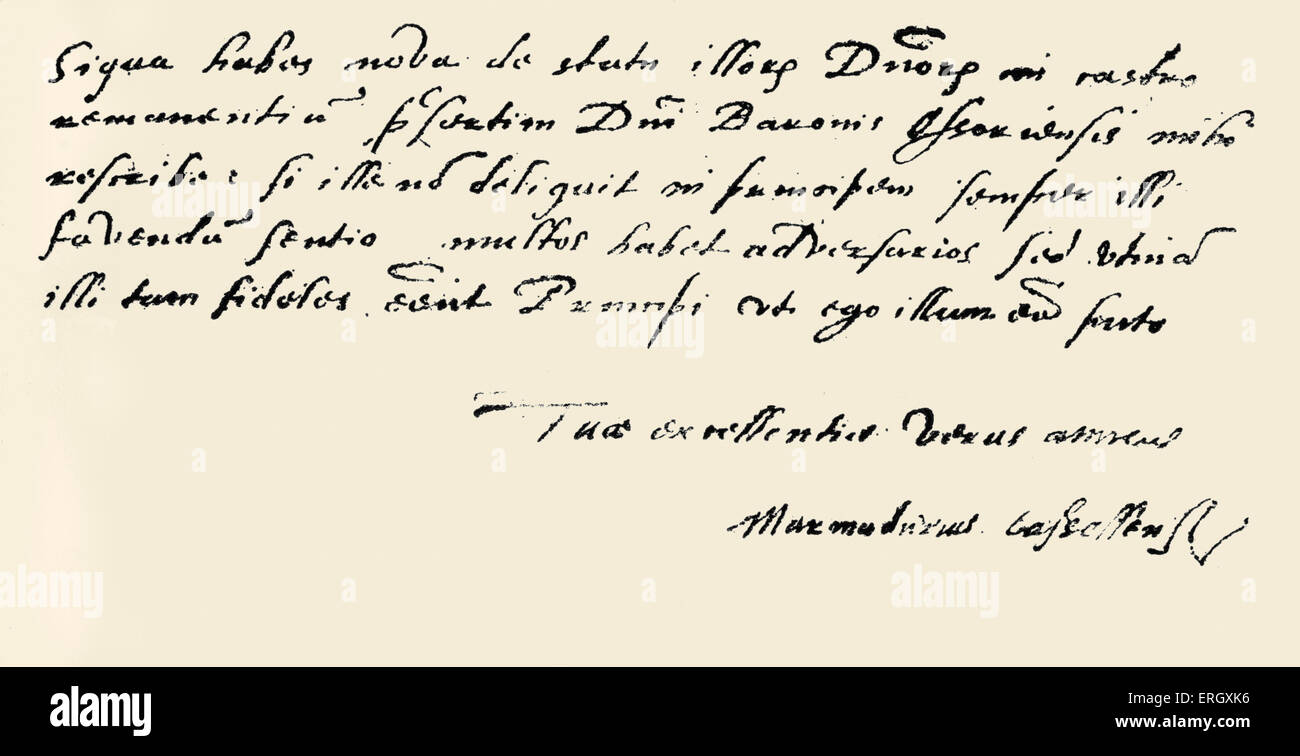 Siqua habes nova de statu illorꝝ Dn̄orꝝ in castro
remanentiū p̄sertim Dn̄i Baronis Essexiensis mihi
rescribe: si ille nō deliquit in principem semper illi
favendū sentio multos habet adversarios sed utinā
illi tam fideles eēnt Principi ut ego illum eē puto
Tuæ excellentiæ verus amicus
Marmaducus Cassellens
alamy
a
alamy
Image ID: ERGXK6
www.alamy.com